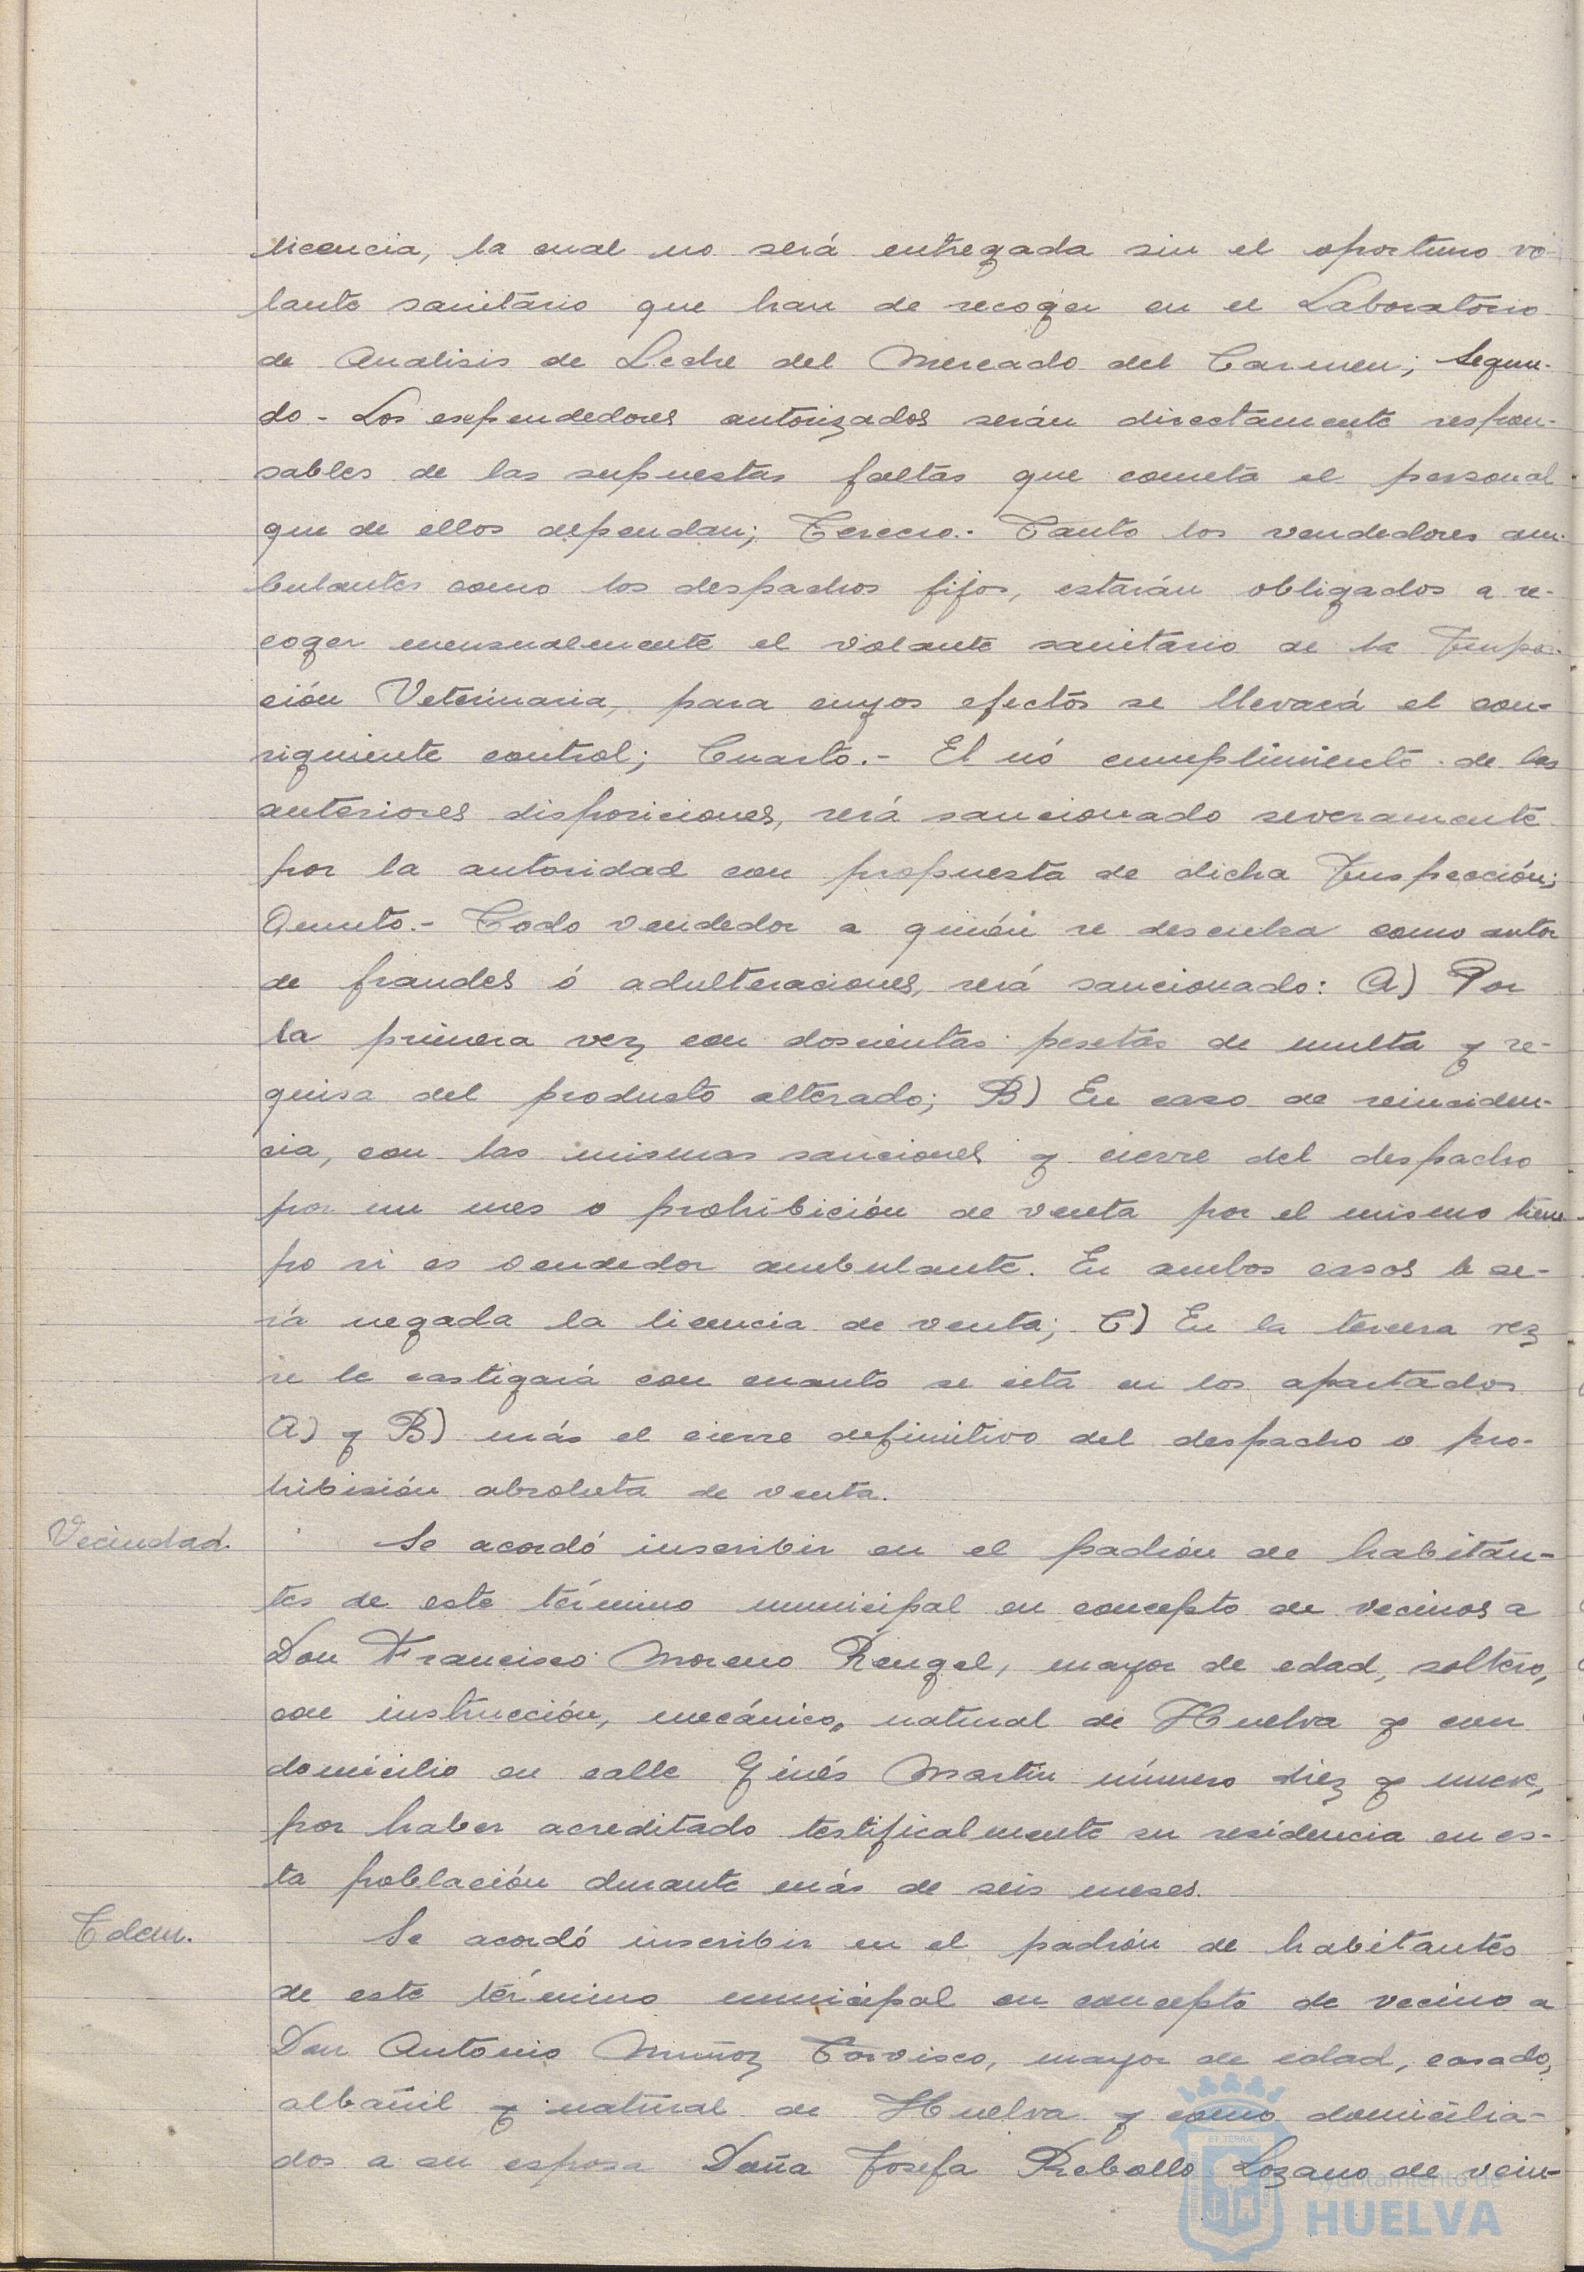 licencia, la cual no será entregada sin el oportuno vo-
lante sanitario que han de recoger en el Laboratorio
de Analisis de Leche del Mercado del Carmen; Segun-
do.- Los expendedores autorizados serán directamente respon-
sables de las supuestas faltas que cometa el personal
que de ellos dependan; Tercero.- Tanto los vendedores am-
bulantes como los despachos fijos, estarán obligados a re-
coger mensualmente el volante sanitario de la Inspe-
ción Veterinaria, para cuyos efectos se llevará el con-
siguiente control; Cuarto.- El nó cumplimiento de las
anteriores disposiciones, será sancionado severamente
por la autoridad con propuesta de dicha Inspección;
Quinto.- Todo vendedor a quién se descubra como autor
de fraudes ó adulteraciones, será sancionado: A) Por
la primera vez, con doscientas pesetas de multa y re-
quisa del producto alterado; B) En caso de reinciden-
cia, con las mismas sanciones y cierre del despacho
por un mes o prohibición de venta por el mismo tiem-
po si es vendedor ambulante. En ambos casos le se-
rá negada la licencia de venta; C) En la tercera vez
se le castigará con cuanto se cita en los apartados
A) y B) más el cierre definitivo del despacho o pro-
hibición absoluta de venta.
Vecindad.
Se acordó inscribir en el padrón de habitan-
tes de este término municipal en concepto de vecinos a
Don Francisco Moreno Rengel, mayor de edad, soltero,
con instrucción, mecánico, natural de Huelva y con
domicilio en calle Ginés Martin número diez y nueve,
por haber acreditado testificalmente su residencia en es-
ta población durante más de seis meses.
Idem.
Se acordó inscribir en el padrón de habitantes
de este término municipal en concepto de vecino a
Don Antonio Muñoz Torvisco, mayor de edad, casado,
albañil y natural de Huelva y como domicilia-
dos a su esposa Doña Josefa Rebollo Lozano de vein-
Ayuntamiento de
HUELVA